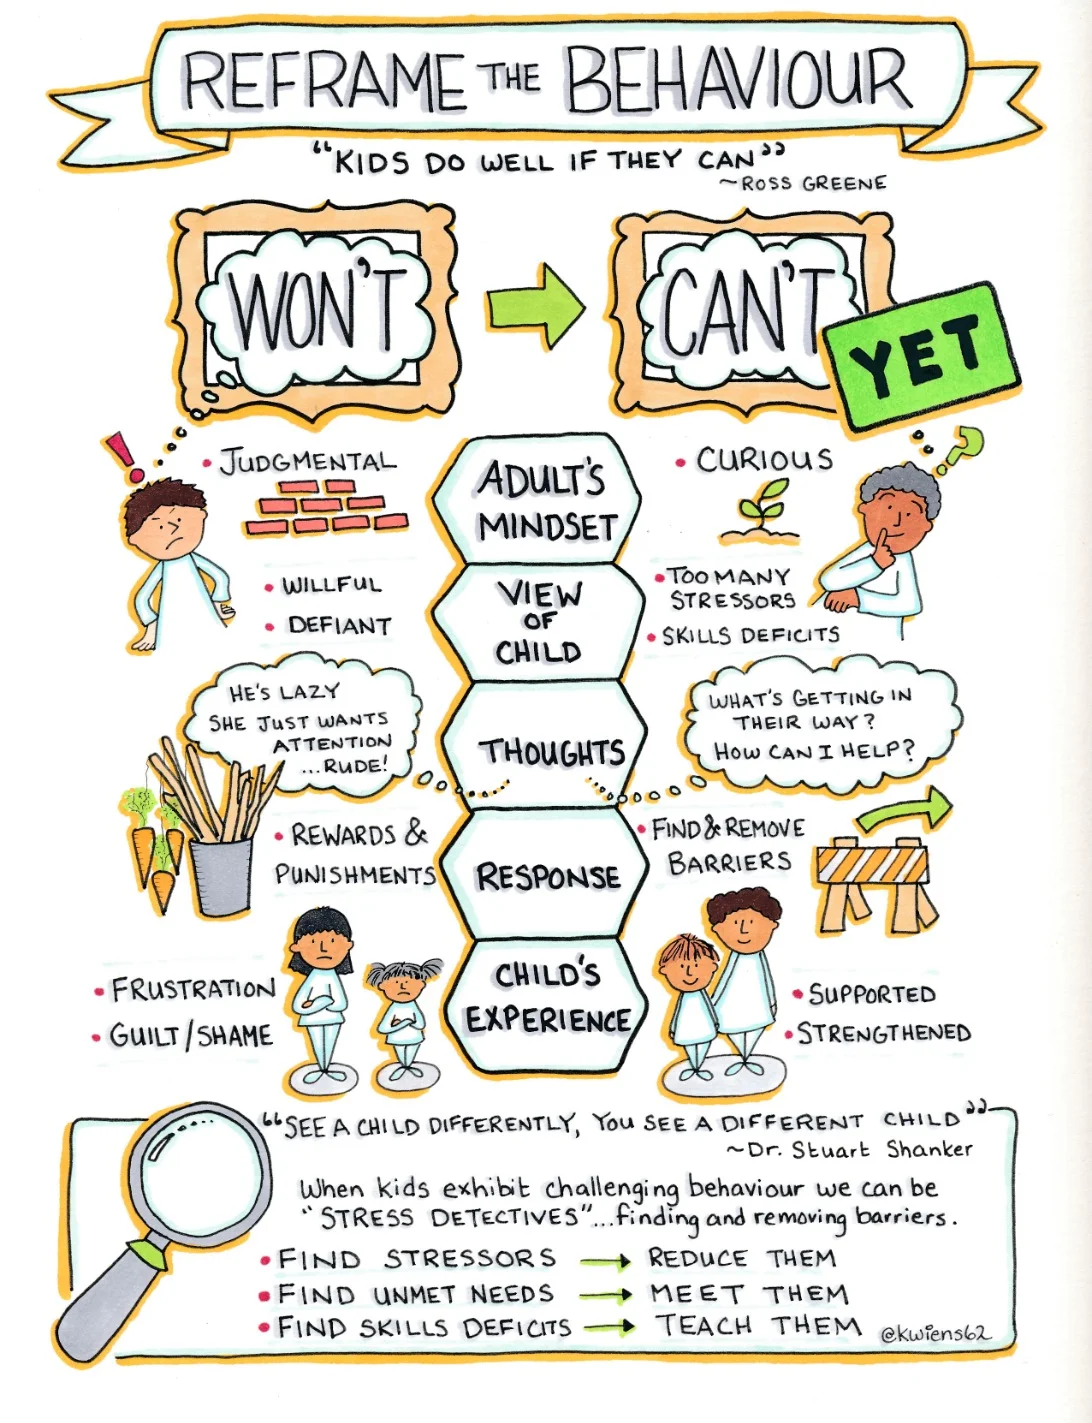 REFRAME THE BEHAVIOUR
"KIDS DO WELL IF THEY CAN"
~ROSS GREENE
WON'T
CAN'T
YET
!
?
ADULT'S
MINDSET
• JUDGMENTAL
• CURIOUS
VIEW
OF
CHILD
• WILLFUL
• DEFIANT
• TOO MANY
STRESSORS
• SKILLS DEFICITS
THOUGHTS
HE'S LAZY
SHE JUST WANTS
ATTENTION
...RUDE!
WHAT'S GETTING IN
THEIR WAY?
HOW CAN I HELP?
RESPONSE
• REWARDS &
PUNISHMENTS
• FIND & REMOVE
BARRIERS
CHILD'S
EXPERIENCE
• FRUSTRATION
• GUILT/SHAME
• SUPPORTED
• STRENGTHENED
"SEE A CHILD DIFFERENTLY, YOU SEE A DIFFERENT CHILD"
~Dr. Stuart Shanker
When kids exhibit challenging behaviour we can be
"STRESS DETECTIVES"...finding and removing barriers.
• FIND STRESSORS → REDUCE THEM
• FIND UNMET NEEDS → MEET THEM
• FIND SKILLS DEFICITS → TEACH THEM
@kwiens62